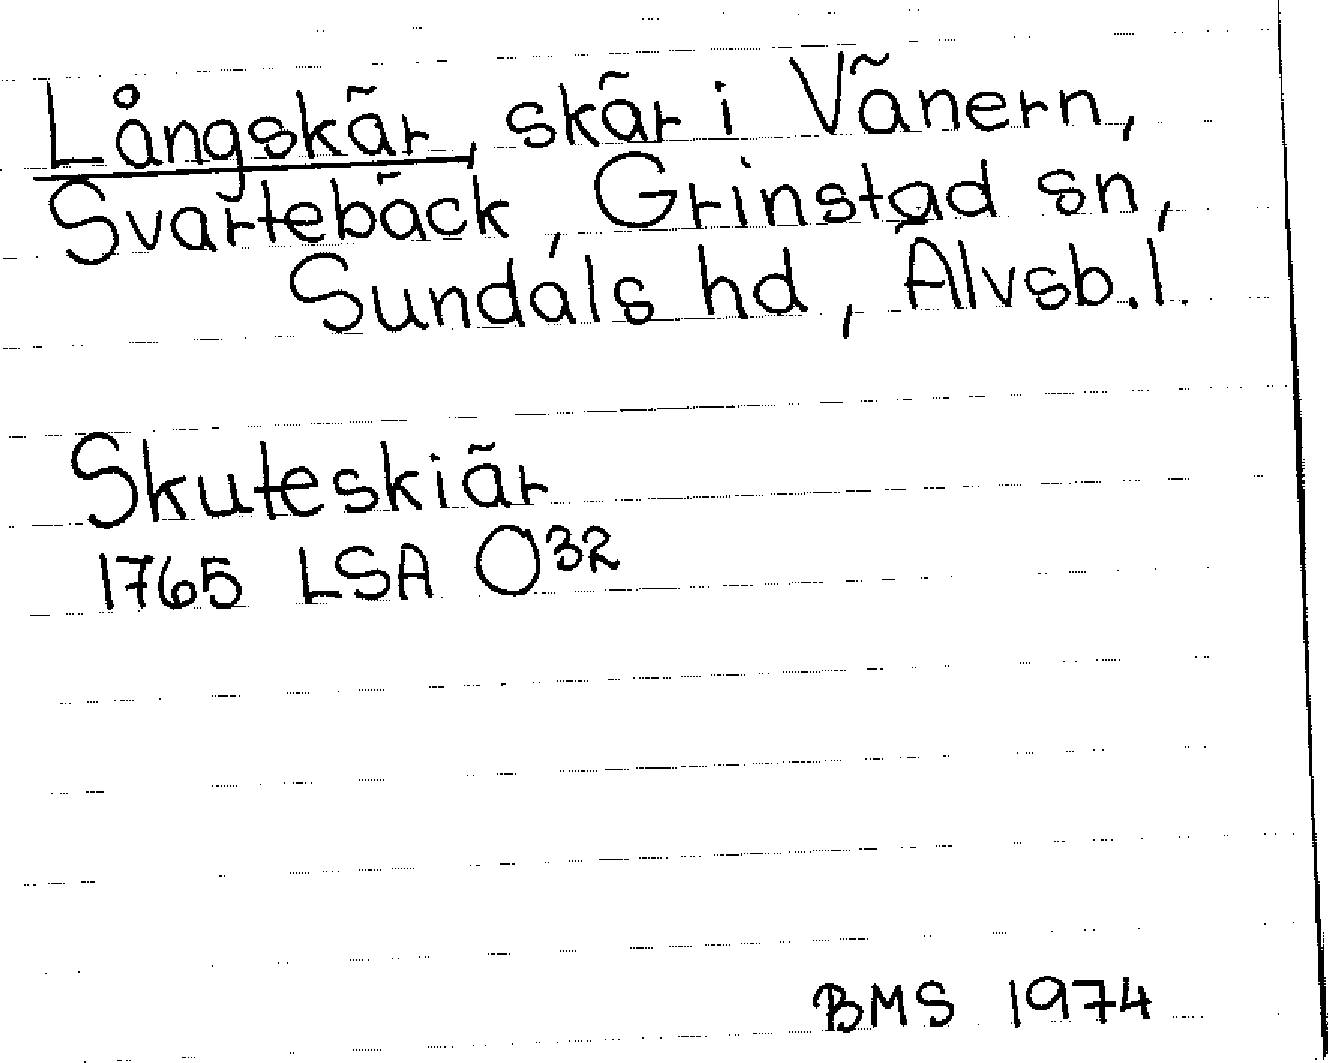 Långskär, skär i Vänern,
Svartebäck, Grinstad sn,
Sundals hd, Älvsb. l.
Skuteskiär
1765 LSA O32
BMS 1974